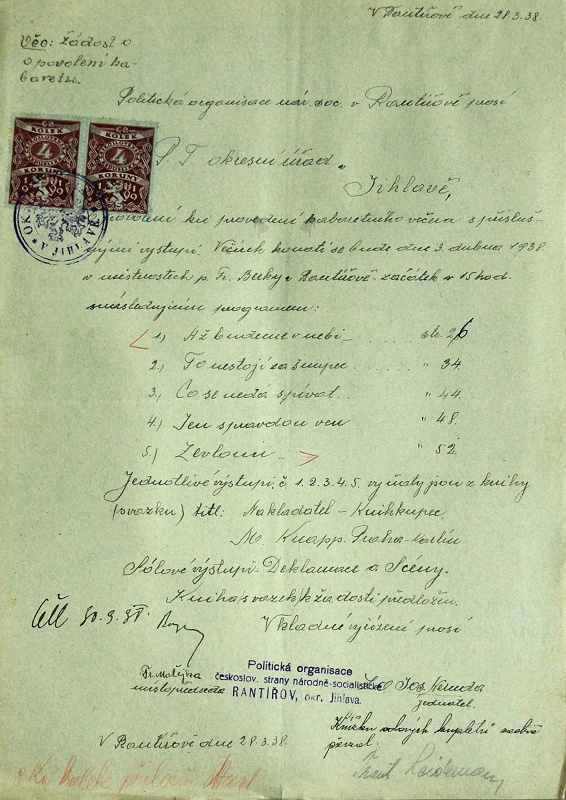 V Rantířově dne 28.3.38.
Věc: Žádost o
o povolení ka-
baretu.
Politická organisace nár. soc. v Rantířově prosí
P. T. okresní úřad
KOLEK
4
KORUNY
KOLEK
4
KORUNY
V JIHLAVĚ
Jihlavě,
povolení ku provedení kabaretního večera s přísluš-
nými výstupí. Večírek konati se bude dne 3. dubna 1938
v místnostech p. Fr. Becky v Rantířově - začátek v 15 hod.
s následujícím programem:
1.) Až budeme v nebi str. 26
2.) To nestojí za šupec " 34
3.) Co se nedá zpívat " 44
4.) Jen s pravdou ven " 48.
5.) Zevloun " 52.
Jednotlivé výstupí č. 1. 2. 3. 4. 5. vyňaty jsou z knihy
(svazku) titl: Nakladatel - Knihkupec
M. Knapp. Praha-Karlín
Sólové výstupí. Deklamace a Scény.
Kniha svazek k žádosti předložen.
V kladné vyřízení prosí
30. 3. 38.
Politická organisace
českoslov. strany národně-socialistické
RANTÍŘOV, okr. Jihlava.
Fr. Matějka
místopředseda
Jos.
jednatel.
V Rantířově dne 28.3.38.
Knížku solových kupletů
převzal:
Kč kolek